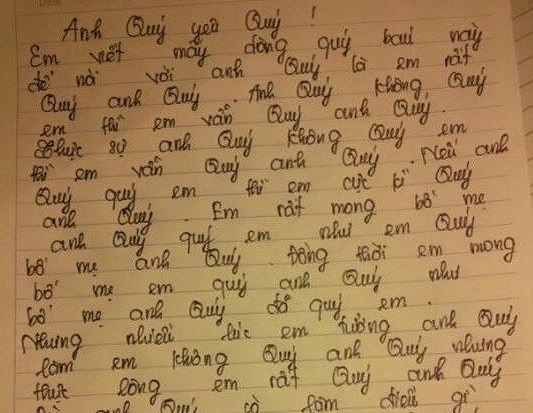 Anh Quý yêu Quý !
Em viết mấy dòng quý bau này
để nói với anh Quý là em rất
Quý anh Quý. Anh Quý không Quý
em thì em vẫn Quý anh Quý.
Thực sự anh Quý không Quý em
thì em vẫn Quý anh Quý. Nếu anh
Quý quý em thì em cực kì Quý
anh Quý. Em rất mong bố mẹ
anh Quý quý em như em Quý
bố mẹ anh Quý. Đồng thời em mong
bố mẹ em quý anh Quý như
bố mẹ anh Quý đã quý em.
Nhưng nhiều lúc em tưởng anh Quý
làm em không Quý anh Quý nhưng
thực lòng em rất Quý anh Quý
anh Quý có làm điều gì